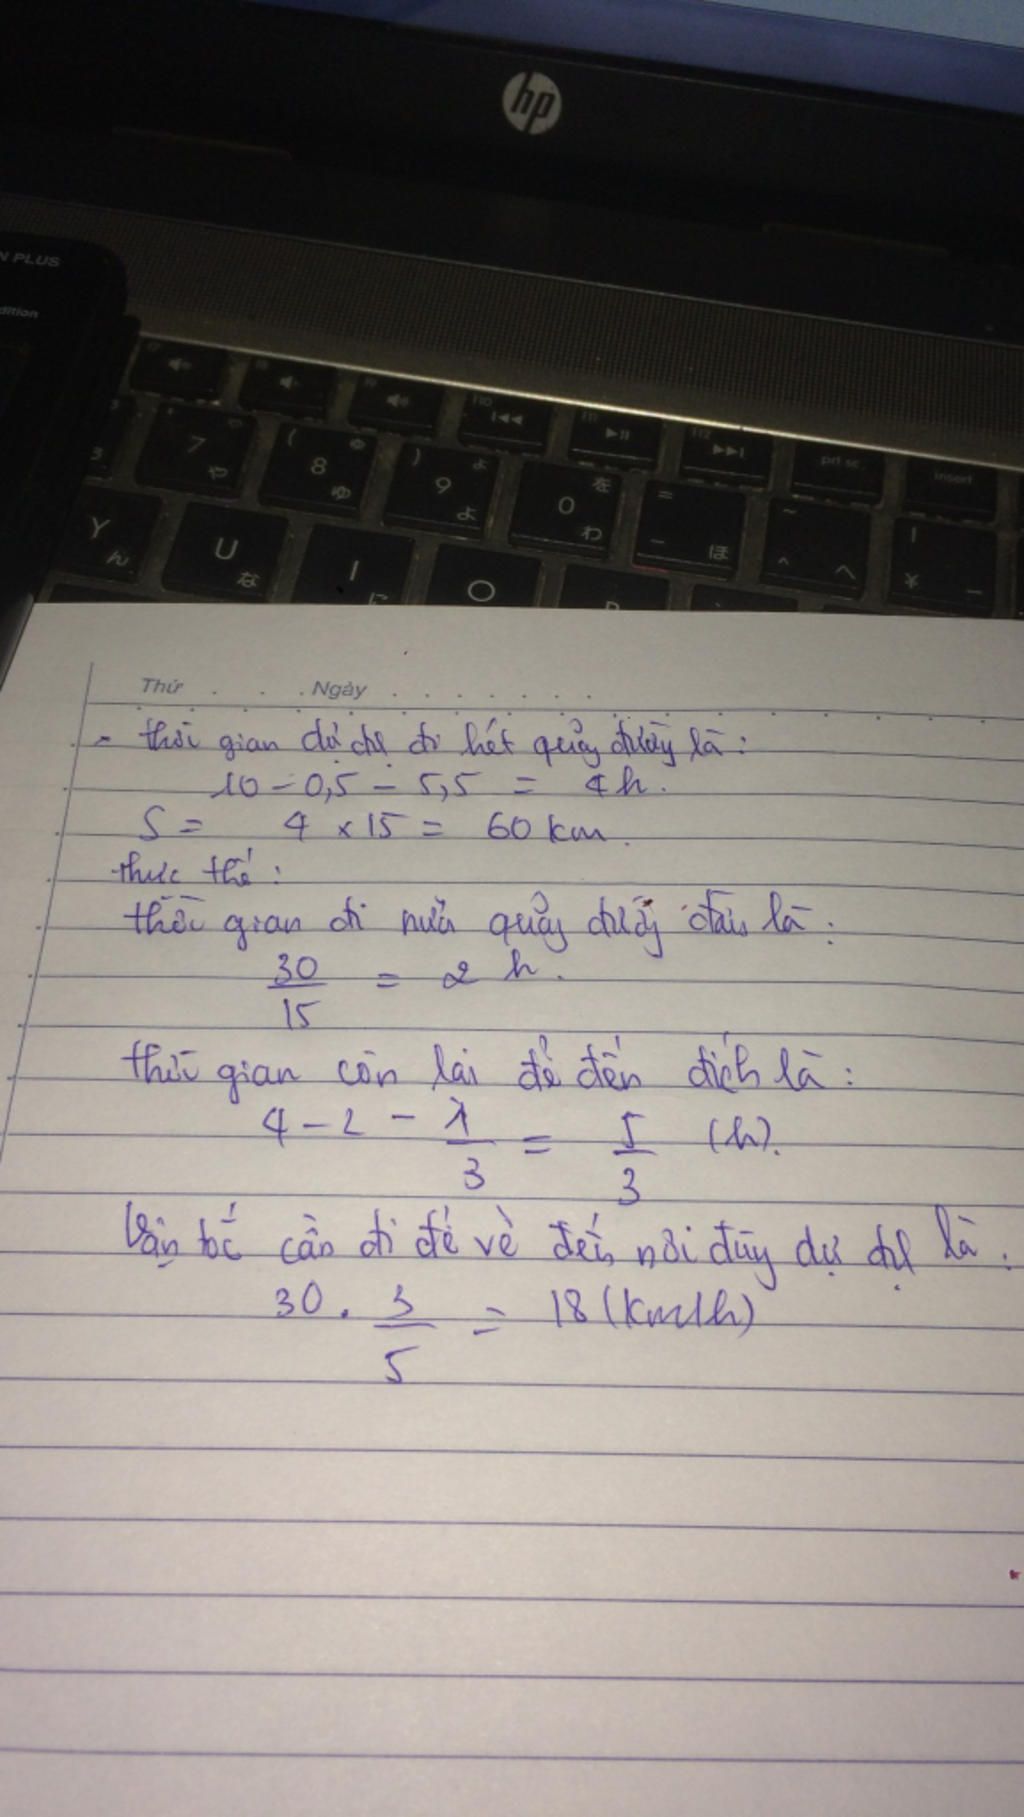 hp
N PLUS
dition
f10
f11
f12
prt sc
insert
7 や
( 8 ゆ ゅ
) 9 よ ょ
0 を わ
= - ほ
~ ^ へ
| ¥ ー
Y ん
U な
I に
O
Thứ . . . Ngày . . . . . . .
- thời gian dự định đi hết quãng đường là :
10 - 0,5 - 5,5 = 4h.
S = 4 x 15 = 60 km.
thực thế :
thời gian đi nửa quãng đường đầu là :
30/15 = 2 h.
thời gian còn lại để đến đích là :
4 - 2 - 1/3 = 5/3 (h).
Vận tốc cần đi để về đến nơi đúng dự định là :
30 . 3/5 = 18 (km/h)